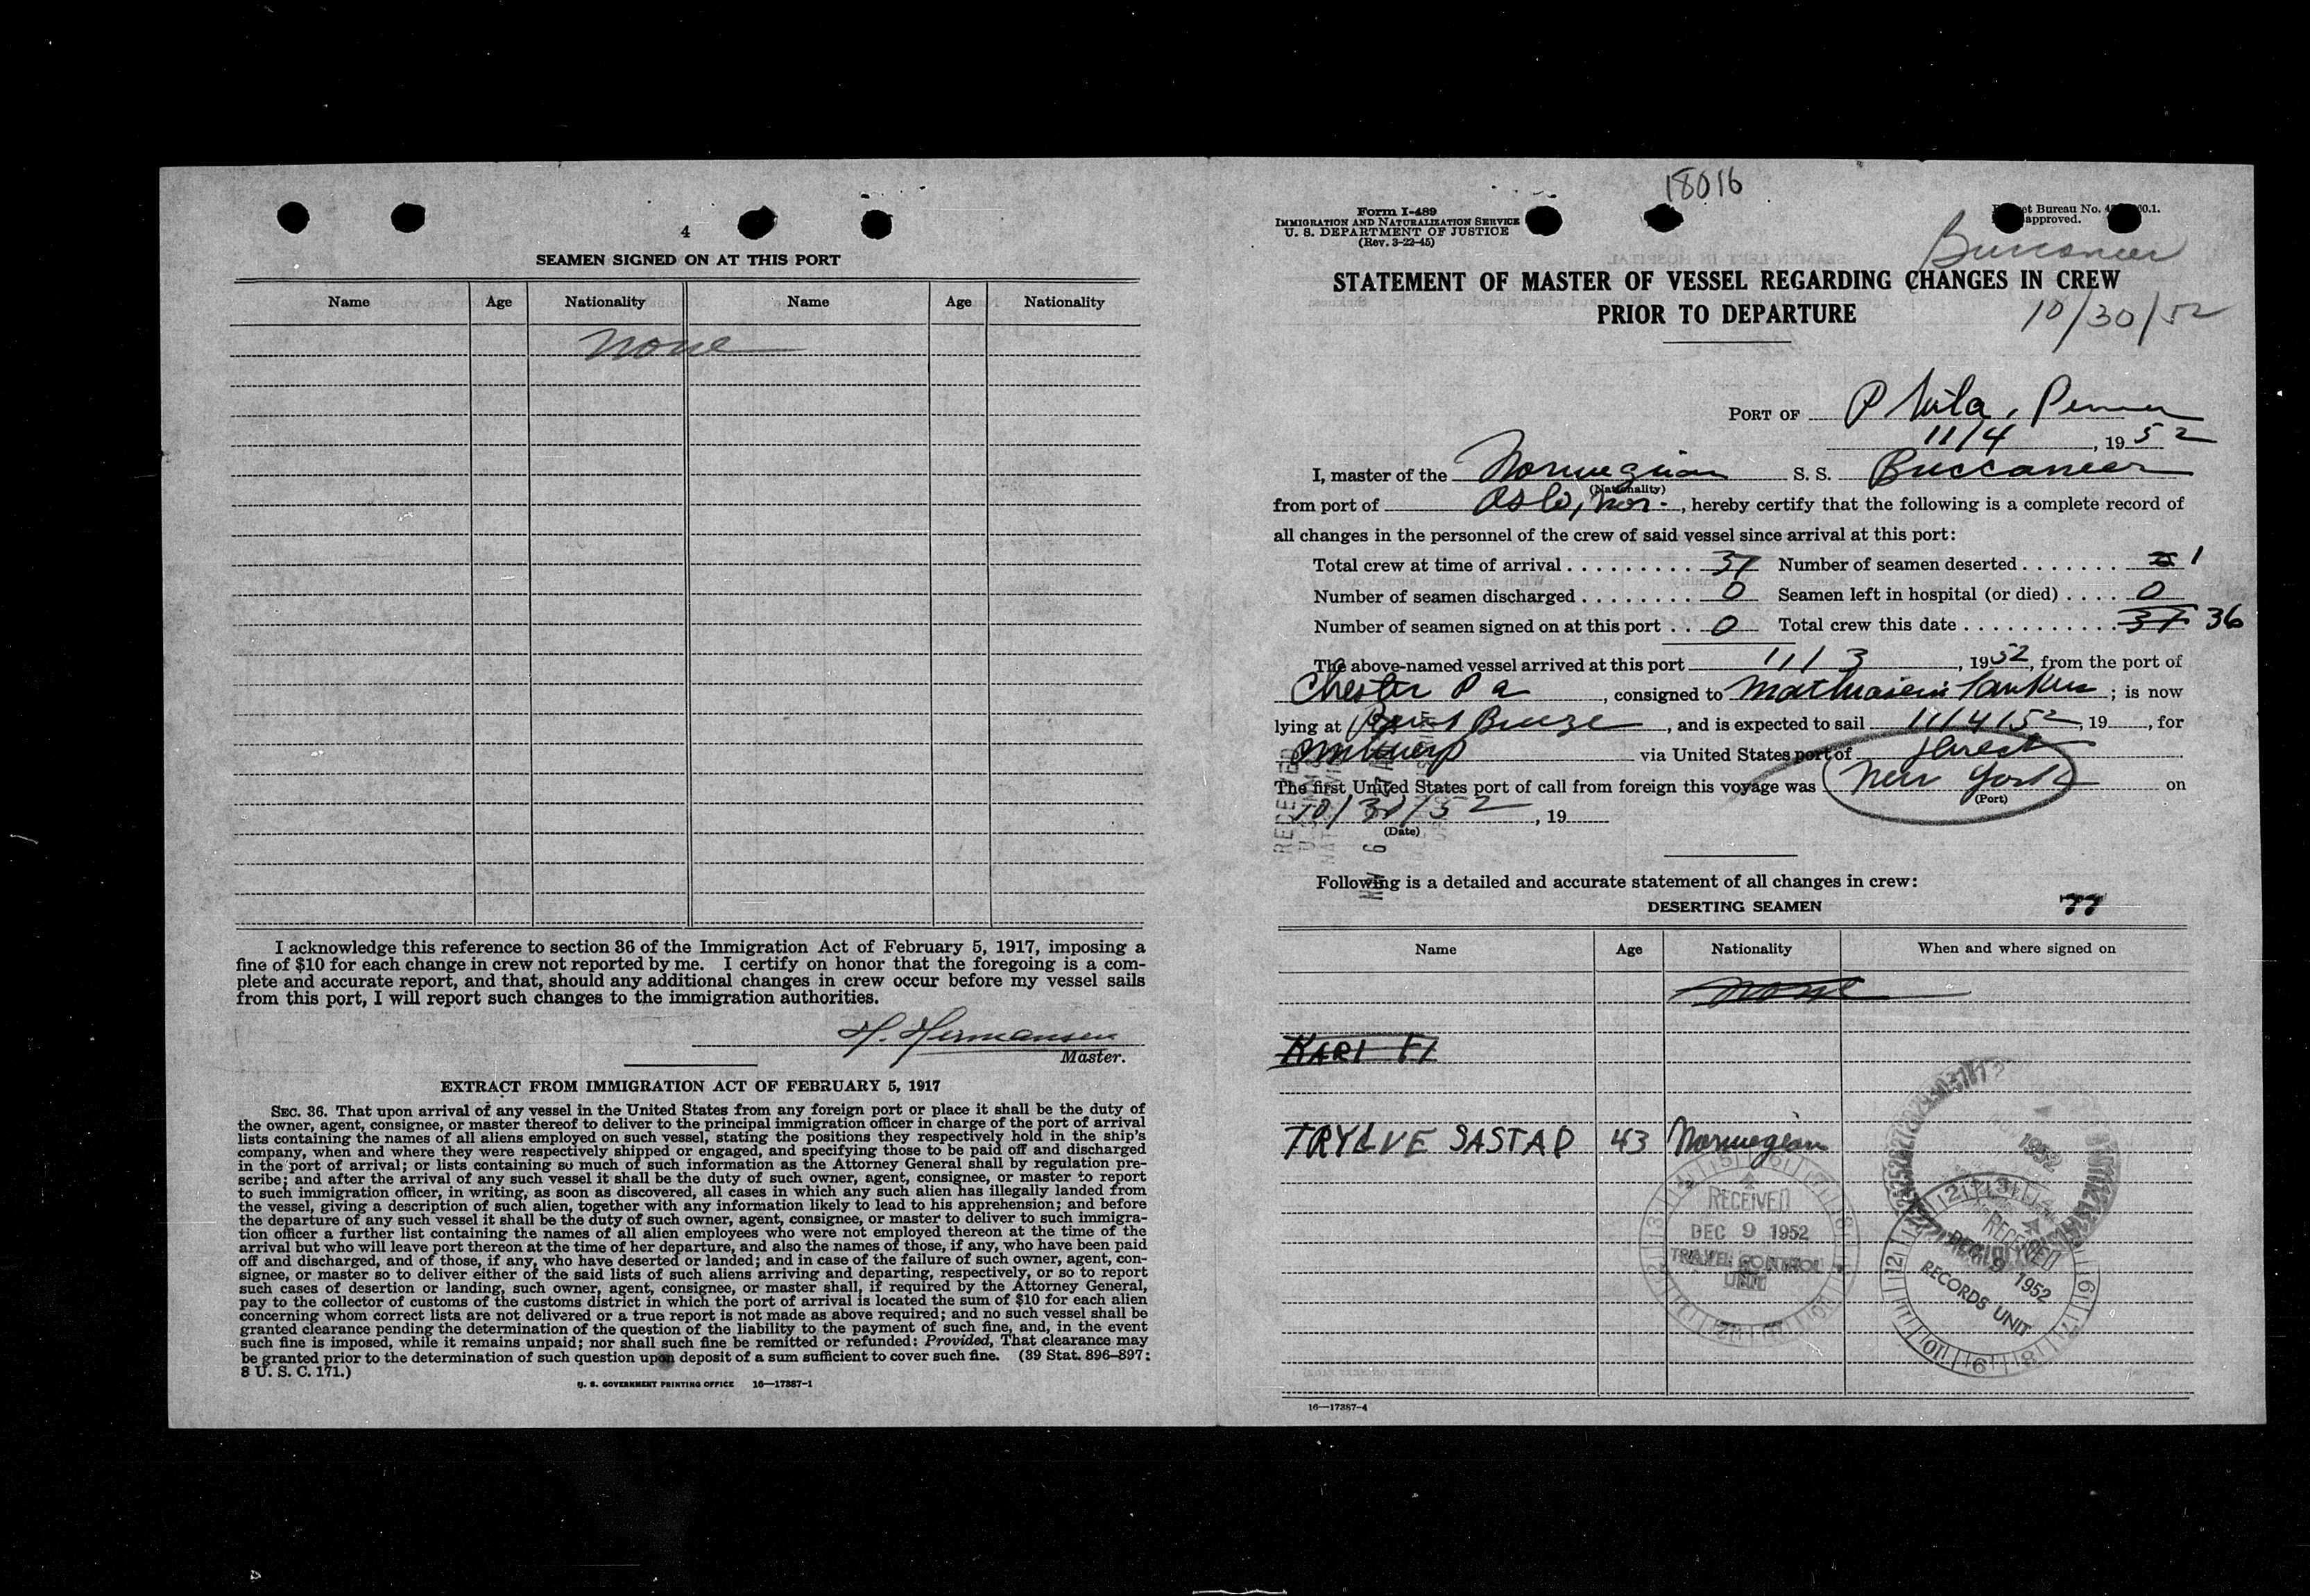 4
SEAMEN SIGNED ON AT THIS PORT
Name Age Nationality Name Age Nationality
None
I acknowledge this reference to section 36 of the Immigration Act of February 5, 1917, imposing a
fine of $10 for each change in crew not reported by me. I certify on honor that the foregoing is a com-
plete and accurate report, and that, should any additional changes in crew occur before my vessel sails
from this port, I will report such changes to the immigration authorities.
H. Hermansen
Master.
EXTRACT FROM IMMIGRATION ACT OF FEBRUARY 5, 1917
SEC. 36. That upon arrival of any vessel in the United States from any foreign port or place it shall be the duty of
the owner, agent, consignee, or master thereof to deliver to the principal immigration officer in charge of the port of arrival
lists containing the names of all aliens employed on such vessel, stating the positions they respectively hold in the ship's
company, when and where they were respectively shipped or engaged, and specifying those to be paid off and discharged
in the port of arrival; or lists containing so much of such information as the Attorney General shall by regulation pre-
scribe; and after the arrival of any such vessel it shall be the duty of such owner, agent, consignee, or master to report
to such immigration officer, in writing, as soon as discovered, all cases in which any such alien has illegally landed from
the vessel, giving a description of such alien, together with any information likely to lead to his apprehension; and before
the departure of any such vessel it shall be the duty of such owner, agent, consignee, or master to deliver to such immigra-
tion officer a further list containing the names of all alien employees who were not employed thereon at the time of the
arrival but who will leave port thereon at the time of her departure, and also the names of those, if any, who have been paid
off and discharged, and of those, if any, who have deserted or landed; and in case of the failure of such owner, agent, con-
signee, or master so to deliver either of the said lists of such aliens arriving and departing, respectively, or so to report
such cases of desertion or landing, such owner, agent, consignee, or master shall, if required by the Attorney General,
pay to the collector of customs of the customs district in which the port of arrival is located the sum of $10 for each alien
concerning whom correct lists are not delivered or a true report is not made as above required; and no such vessel shall be
granted clearance pending the determination of the question of the liability to the payment of such fine, and, in the event
such fine is imposed, while it remains unpaid; nor shall such fine be remitted or refunded: Provided, That clearance may
be granted prior to the determination of such question upon deposit of a sum sufficient to cover such fine. (39 Stat. 896–897:
8 U. S. C. 171.)
U. S. GOVERNMENT PRINTING OFFICE 16—17387-1
18016
Form I-489
IMMIGRATION AND NATURALIZATION SERVICE
U. S. DEPARTMENT OF JUSTICE
(Rev. 3-22-45)
Bureau No.
approved.
Buccaneer
STATEMENT OF MASTER OF VESSEL REGARDING CHANGES IN CREW
PRIOR TO DEPARTURE
10/30/52
PORT OF Phila, Penna
11/4, 1952
I, master of the Norwegian S. S. Buccaneer
(Nationality)
from port of Oslo, Nor., hereby certify that the following is a complete record of
all changes in the personnel of the crew of said vessel since arrival at this port:
Total crew at time of arrival 37 Number of seamen deserted 1
Number of seamen discharged 0 Seamen left in hospital (or died) 0
Number of seamen signed on at this port 0 Total crew this date 37 36
The above-named vessel arrived at this port 11/3, 1952, from the port of
Chester Pa, consigned to Mathiasen's Tankers; is now
lying at Point Breeze, and is expected to sail 11/4/52, 19, for
Antwerp via United States port of direct
The first United States port of call from foreign this voyage was New York on
(Port)
10/30/52, 19
(Date)
RECEIVED
NOV 6
Following is a detailed and accurate statement of all changes in crew:
DESERTING SEAMEN
Name Age Nationality When and where signed on
None
KARI FI
TRYGVE SASTAD 43 Norwegian
RECEIVED
DEC 9 1952
TRAVEL CONTROL
UNIT
1952
RECEIVED
DEC 9 1952
RECORDS UNIT
16—17387-4